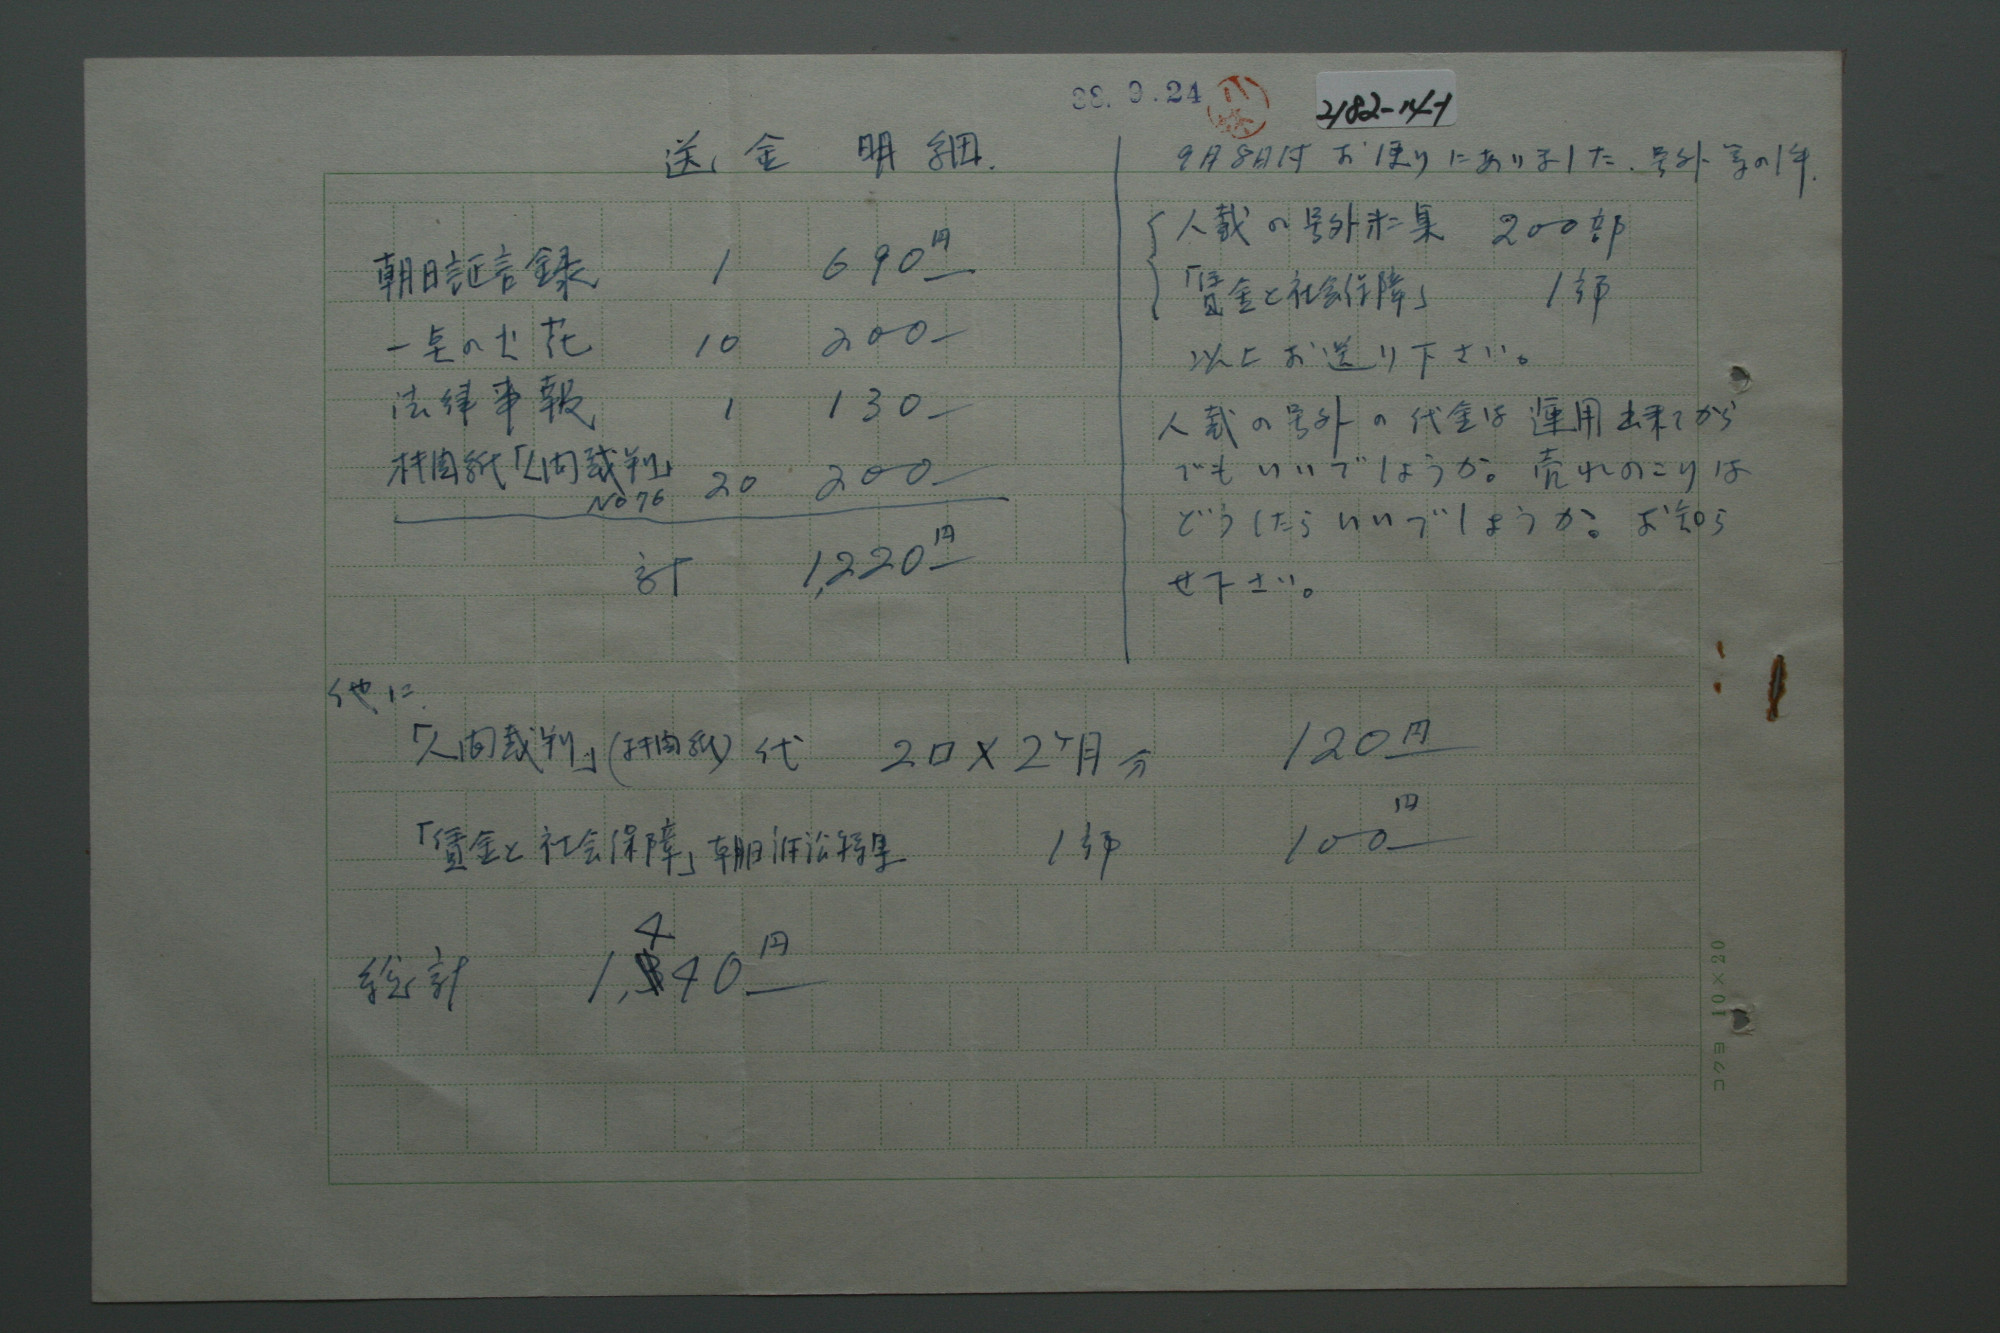 38. 9. 24
小林
2182-14-1
送金 明細.
朝日証言録 1 690円
一点の火花 10 200
法律事報 1 130
機関紙「人間裁判」 No 76 20 200
計 1,220円
9月8日付 お便りにありました. 号外等の件.
人裁の号外特集 200部
「賃金と社会保障」 1部
以上 お送り下さい。
人裁の号外の代金は 運用出来てから
でもいいでしょうか。売れのこりは
どうしたらいいでしょうか。お知ら
せ下さい。
他に.
「人間裁判」(機関紙) 代 2口×2ヶ月分 120円
「賃金と社会保障」朝日訴訟特集 1部 100円
総計 1,440円
コクヨ 10×20